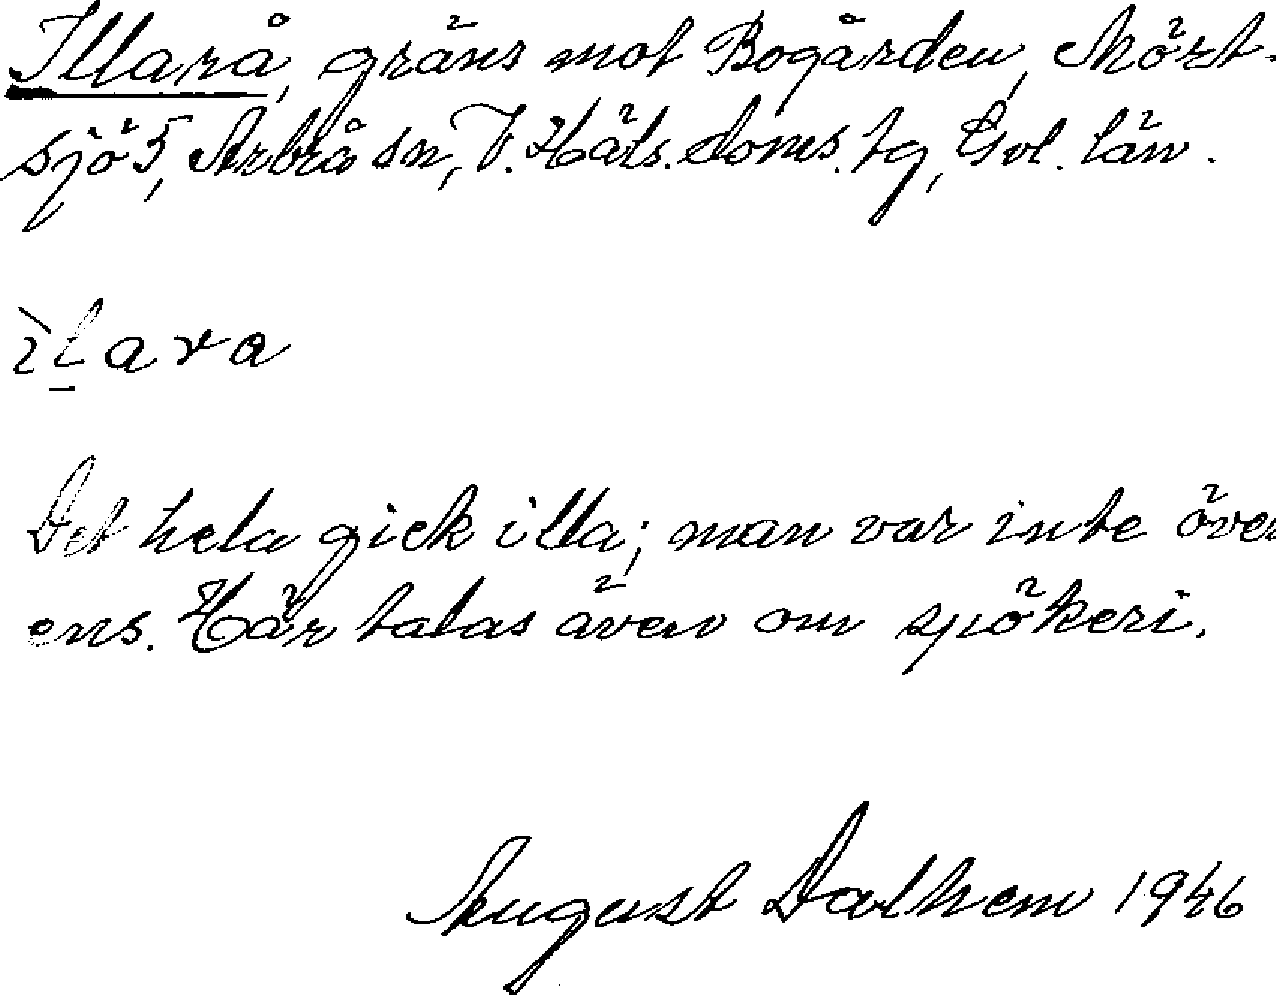 Illarå, gräns mot Bogården, Mört-
sjö 5, Arbrå sn, V. Häls. doms. tg, Gvl. län.
ìlara
Det hela gick illa; man var inte över
ens. Här talas även om spökeri.
August Dalhem 1946